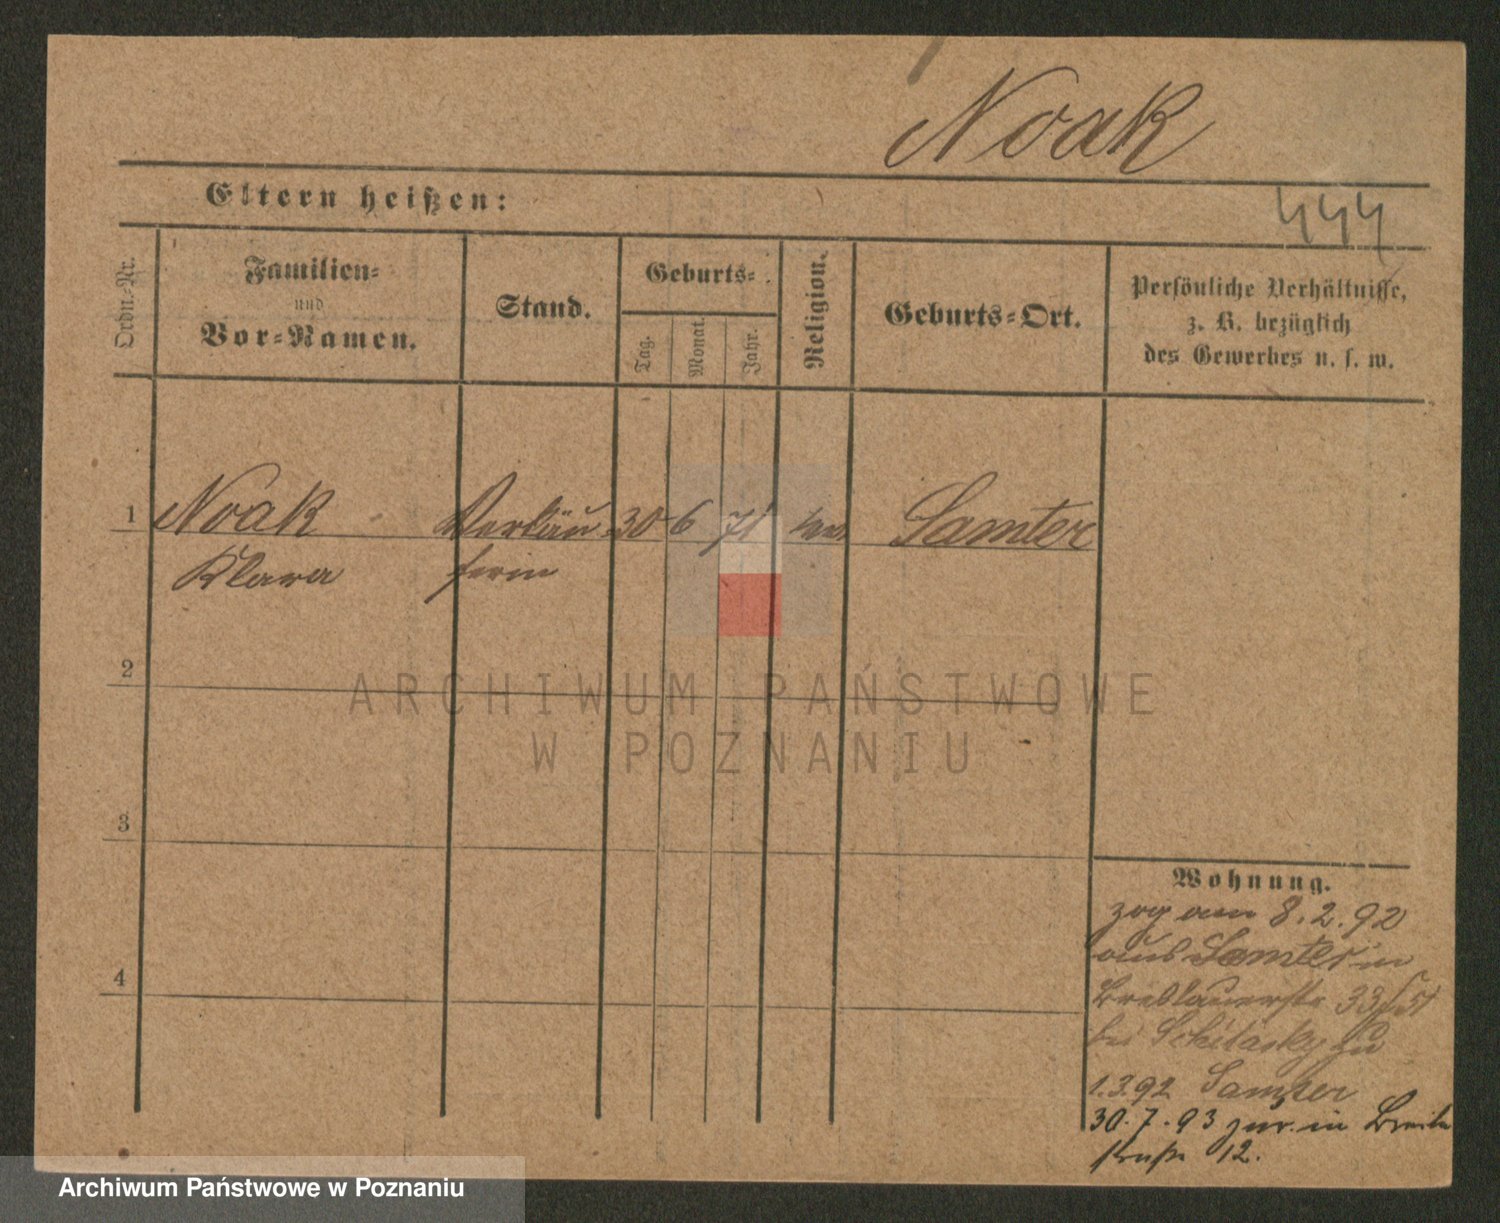 Noak
Eltern heißen:
444
Ordn.-Nr.
Familien-
und
Vor-Namen.
Stand.
Geburts-
Tag.
Monat.
Jahr.
Religion.
Geburts-Ort.
Persönliche Verhältnisse,
z. B. bezüglich
des Gewerbes u. s. w.
1 Noak Verkäu- 30 6 71 Samter
Klara ferin
2
3
4
Wohnung.
zog am 8.2.92
aus Samter in
Breslauerstr 33
bei zu
1.3.92 Samter
30.7.93 zur. in Breite
straße 12.
ARCHIWUM PAŃSTWOWE
W POZNANIU
Archiwum Państwowe w Poznaniu